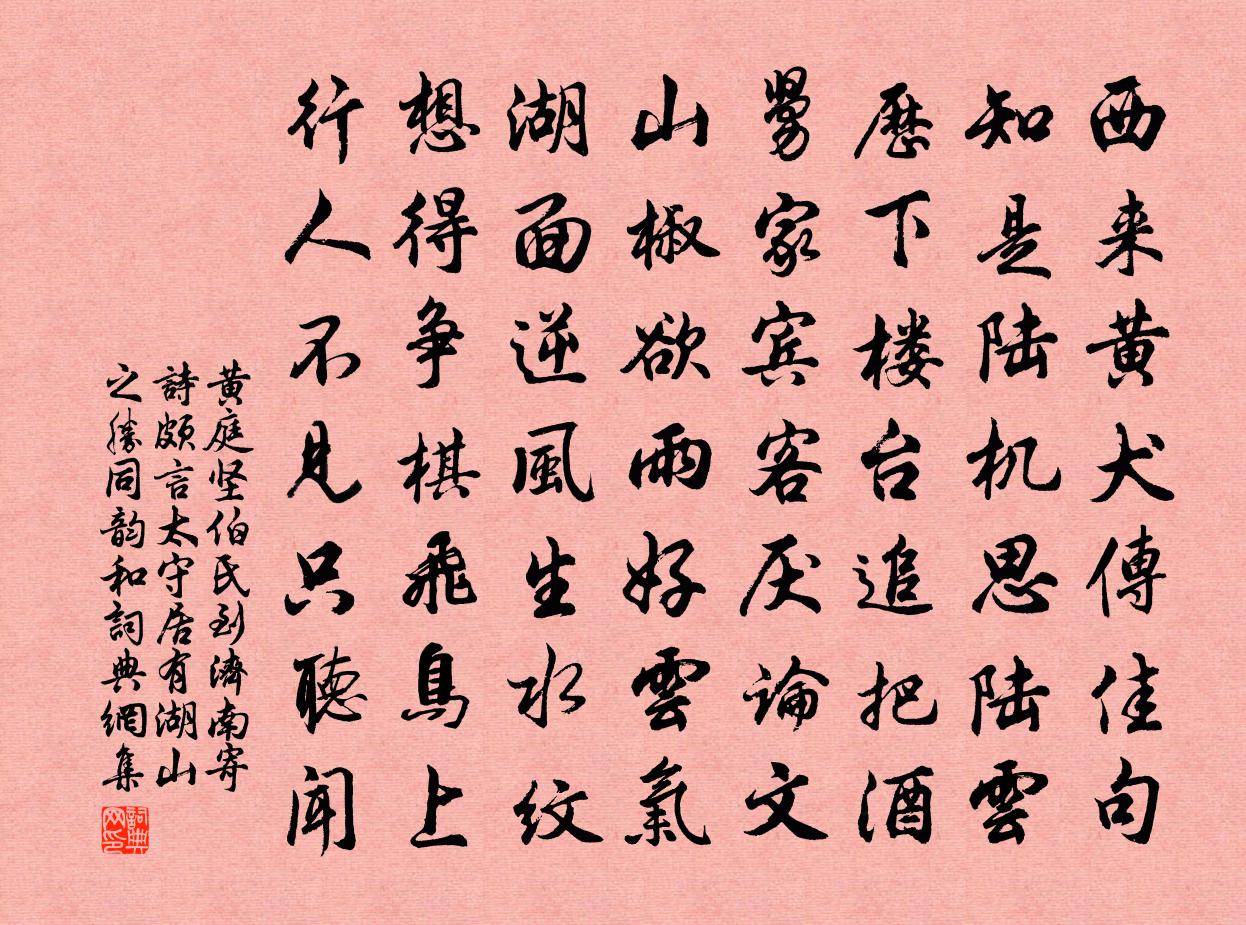 西来黄犬傳佳句
知是陆机思陆雲
歷下楼台追把酒
舅家宾客厌論文
山椒欲雨好雲氣
湖面逆風生水紋
想得争棋飛鳥上
行人不見只聽闻
黄庭坚伯氏到濟南寄
詩頗言太守居有湖山
之勝同韵和詞典網集
詞典
网印